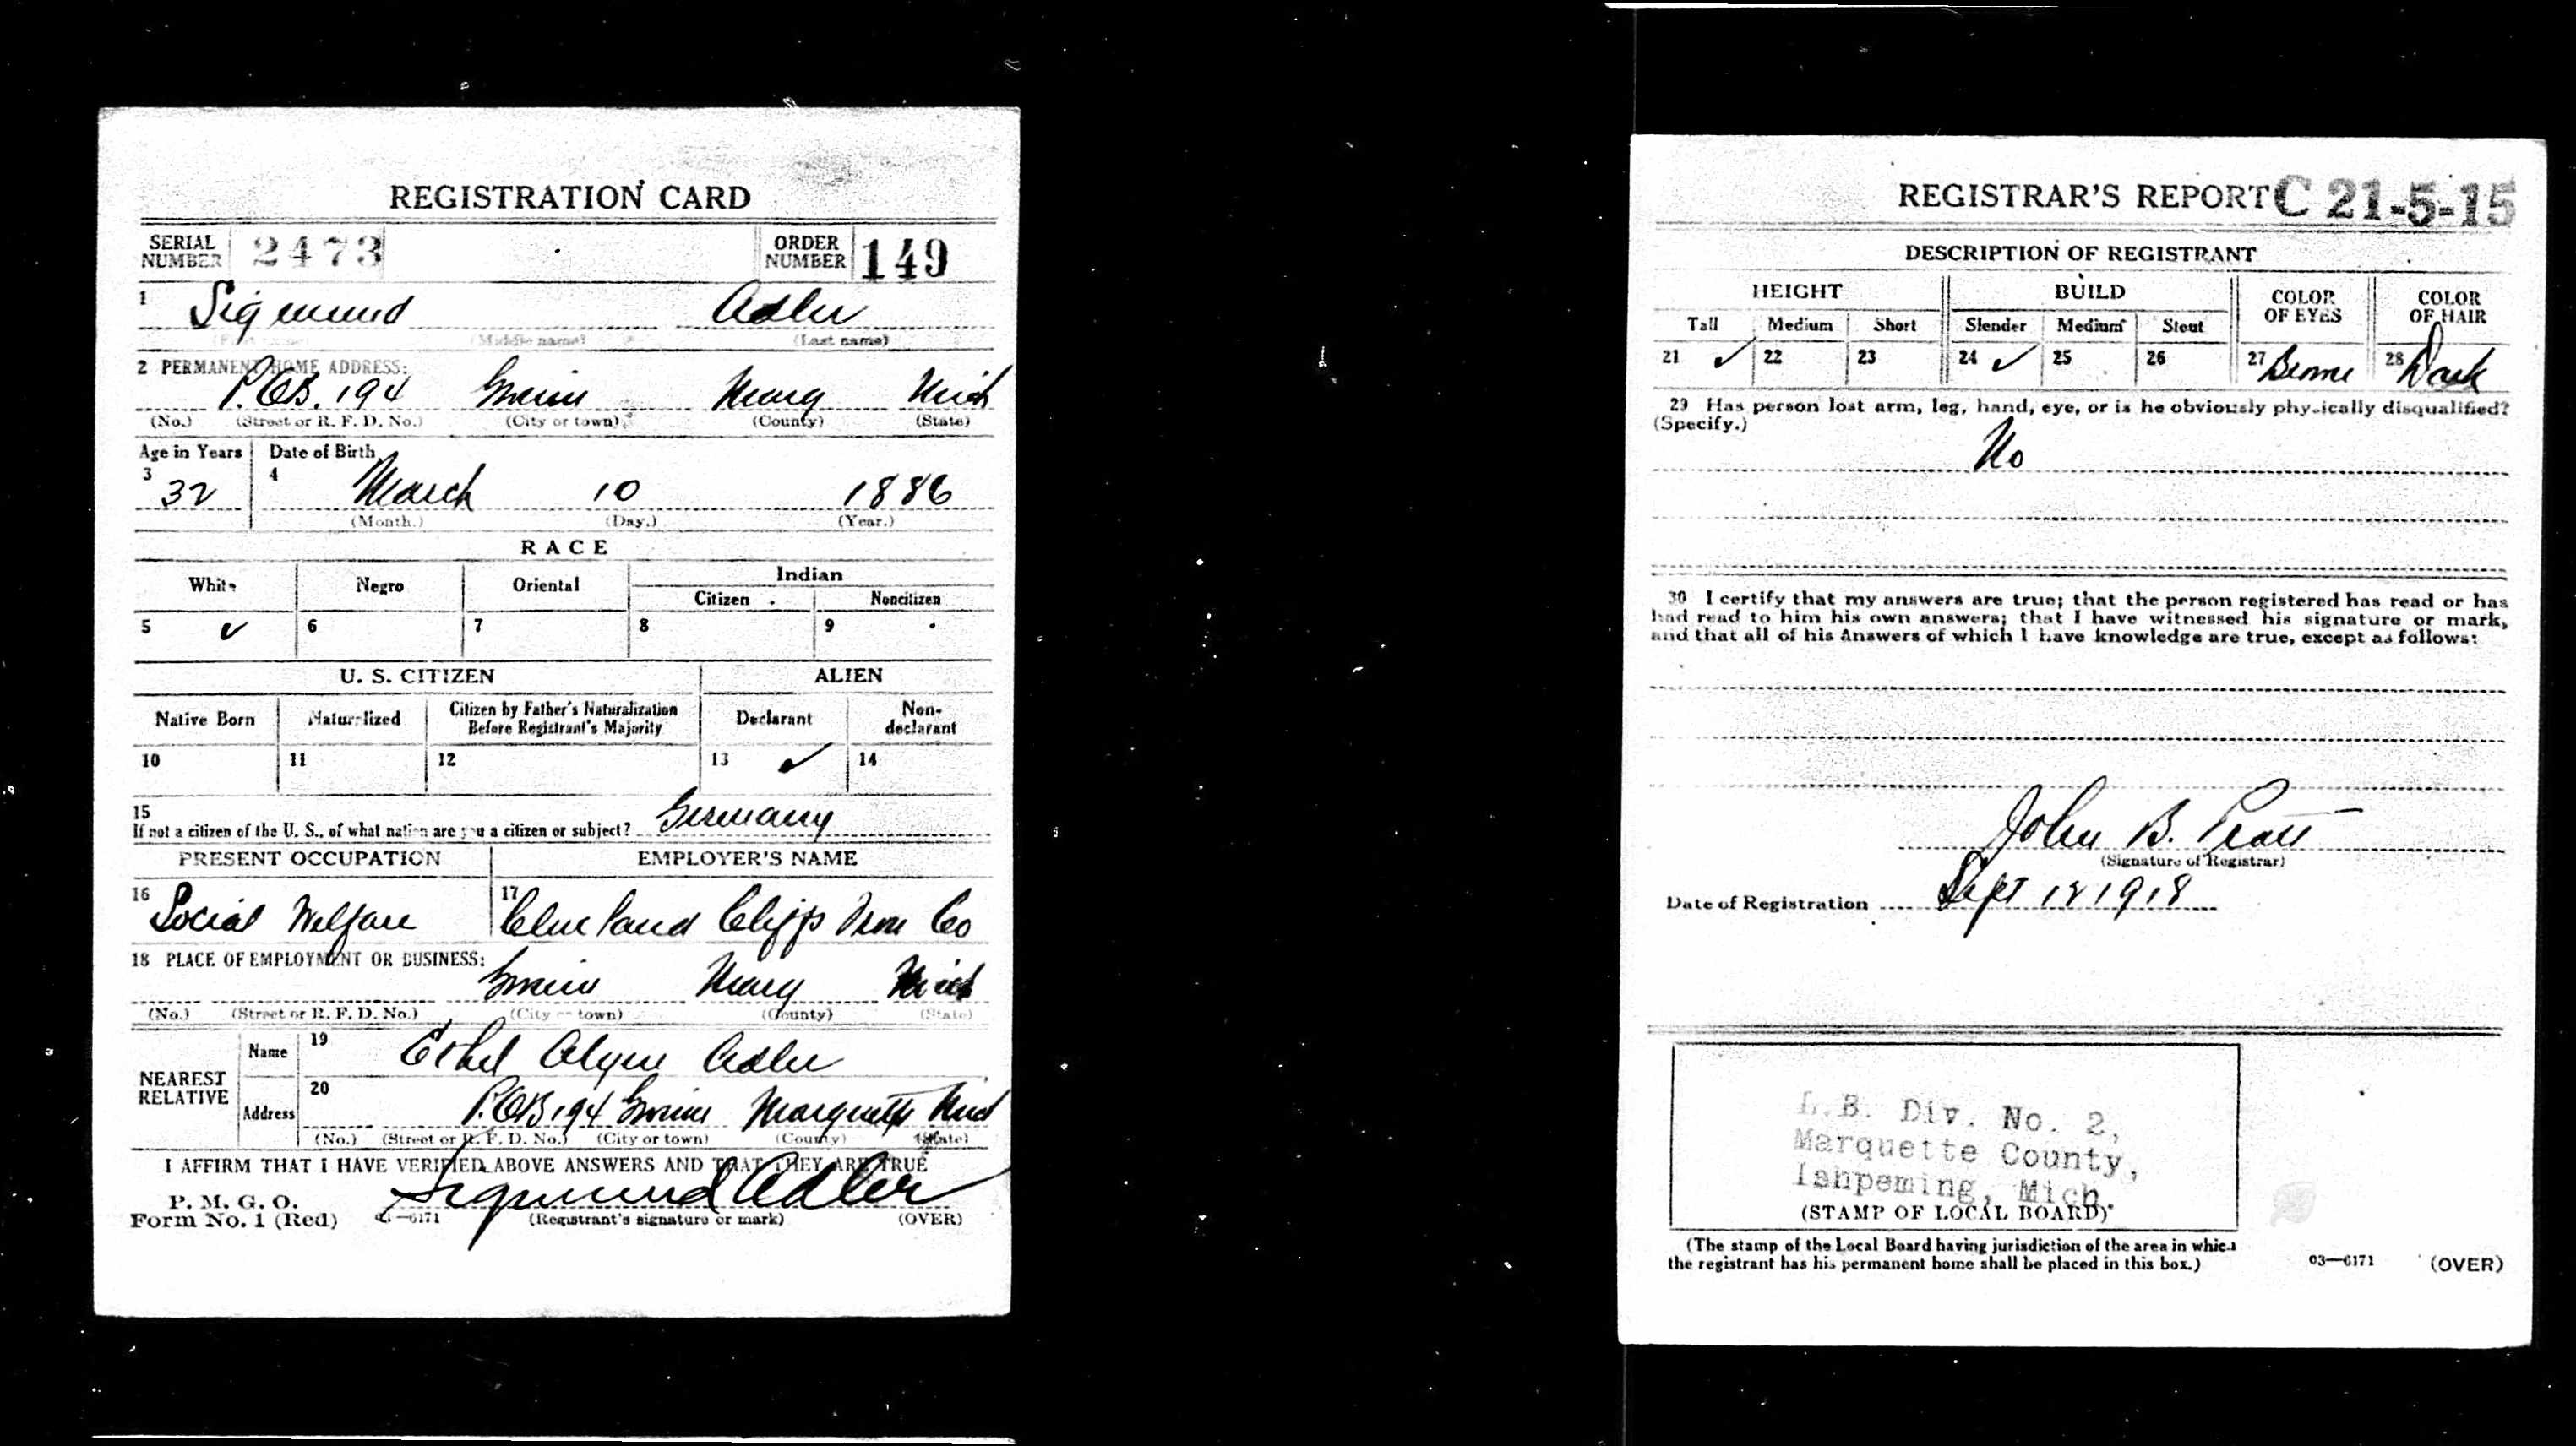 REGISTRATION CARD
SERIAL NUMBER 2473 ORDER NUMBER 149
1 Sigmund Adler
(Middle name) (Last name)
2 PERMANENT HOME ADDRESS:
P.O.B. 194 Gwinn Marq Mich
(No.) (Street or R. F. D. No.) (City or town) (County) (State)
Age in Years Date of Birth
3 32 4 March 10 1886
(Month.) (Day.) (Year.)
RACE
White Negro Oriental Indian
Citizen Noncitizen
5 ✓ 6 7 8 9
U. S. CITIZEN ALIEN
Native Born Naturalized Citizen by Father's Naturalization Before Registrant's Majority Declarant Non-declarant
10 11 12 13 ✓ 14
15
If not a citizen of the U. S., of what nation are you a citizen or subject? Germany
PRESENT OCCUPATION EMPLOYER'S NAME
16 Social Welfare 17 Cleveland Cliffs Iron Co
18 PLACE OF EMPLOYMENT OR BUSINESS:
Gwinn Marq Mich
(No.) (Street or R. F. D. No.) (City or town) (County) (State)
NEAREST RELATIVE
Name 19 Ethel Adler
Address 20 P.O.B 194 Gwinn Marquette Mich
(No.) (Street or R. F. D. No.) (City or town) (County) (State)
I AFFIRM THAT I HAVE VERIFIED ABOVE ANSWERS AND THAT THEY ARE TRUE
P. M. G. O.
Form No. 1 (Red) 03—6171 Sigmund Adler
(Registrant's signature or mark) (OVER)
REGISTRAR'S REPORT C 21-5-15
DESCRIPTION OF REGISTRANT
HEIGHT BUILD COLOR OF EYES COLOR OF HAIR
Tall Medium Short Slender Medium Stout
21 ✓ 22 23 24 ✓ 25 26 27 Brown 28 Dark
29 Has person lost arm, leg, hand, eye, or is he obviously physically disqualified?
(Specify.)
No
30 I certify that my answers are true; that the person registered has read or has
had read to him his own answers; that I have witnessed his signature or mark,
and that all of his answers of which I have knowledge are true, except as follows:
John B. Pratt
(Signature of Registrar)
Date of Registration Sept 12 1918
L.B. Div. No. 2,
Marquette County,
Ishpeming, Mich.
(STAMP OF LOCAL BOARD)
(The stamp of the Local Board having jurisdiction of the area in which
the registrant has his permanent home shall be placed in this box.)
03—6171 (OVER)